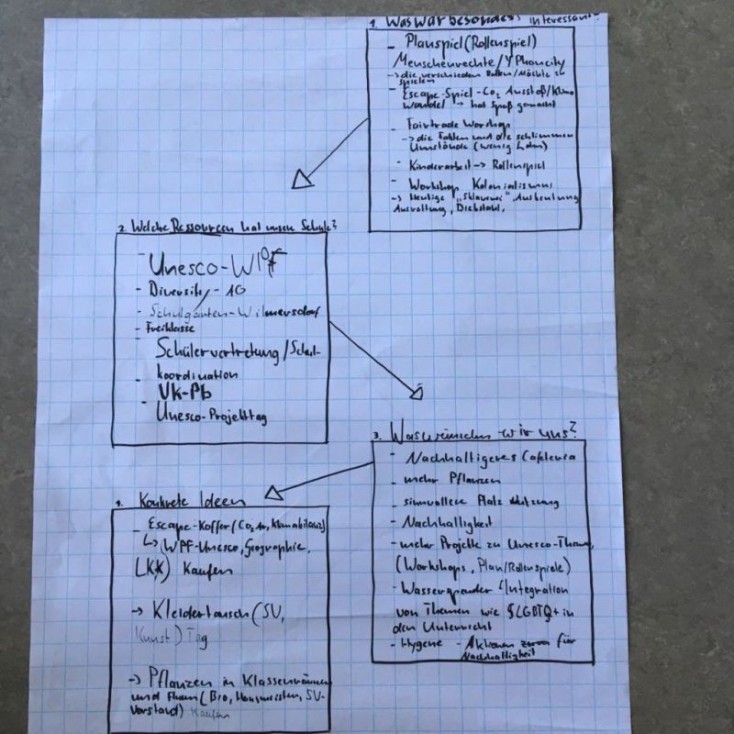 1. Was war besonders interessant?
- Planspiel (Rollenspiel)
Menschenrechte/
-> die verschieden Rollen/Mächte zu
spielen
- Escape-Spiel-CO2 Ausstoß/Klima
Wandel -> hat Spaß gemacht
- Fairtrade Workshop
-> die Fakten und die schlimmen
Umstände (wenig Lohn)
- Kinderarbeit -> Rollenspiel
- Workshop Kolonialismus
-> Heutige "Sklaverei" Ausbeutung
Diebstahl,
2. Welche Ressourcen hat unsere Schule?
- Unesco-WPF
- Diversity-AG
- Schulgarten-Wilmersdorf
- Freiklasse
- Schülervertretung/Schul-
koordination
- VK-Pb
- Unesco-Projekttag
3. Was wünschen wir uns?
- Nachhaltigeres Cafeteria
- mehr Pflanzen
- sinnvollere Platz Nutzung
- Nachhaltigkeit
- mehr Projekte zu Unesco-Themen
(Workshops, Plan/Rollenspiele)
- Wasserspender - Integration
von Themen wie LGBTQ+ in
den Unterricht
- Hygene - Aktionen für
Nachhaltigkeit
4. Konkrete Ideen
- Escape-Koffer (CO2, Klimabilanz)
↳ WPF-Unesco, Geographie,
LKK) Kaufen
-> Kleidertausch (SV,
Kunst) Tag
-> Pflanzen in Klassenräumen
und Fluren (Bio, Hausmeister, SV-
Vorstand) Kaufen